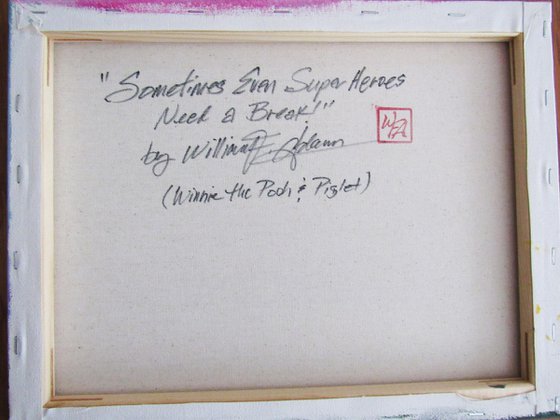 "Sometimes Even Super Heroes
Need a Break!"
by William E.
(Winnie the Pooh & Piglet)